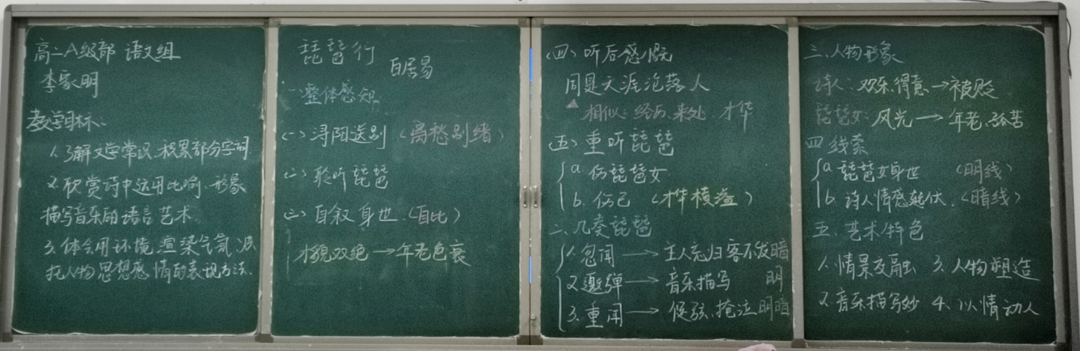 高二A级部 语文组
李家明
教学目标:
1.了解文学常识.积累部分字词
2.欣赏诗中运用比喻.形象
描写音乐的语言艺术
3.体会用环境渲染气氛.
托人物思想感情的表现方法.
琵琶行
白居易
一.整体感知
(一)浔阳送别(离愁别绪)
(二)聆听琵琶
(三)自叙身世(自比)
才貌双绝→年老色衰
(四)听后感慨
同是天涯沦落人
相似:经历.来处.才华
(五)重听琵琶
a.伤琵琶女
b.伤己(才华横溢)
二.几变琵琶
1.忽闻→主人忘归客不发 暗
2.邀弹→音乐描写 明
3.重闻→促弦.掩泣 明暗
三.人物形象
诗人:欢乐.得意→被贬
琵琶女:风光→年老.孤苦
四.线索
a.琵琶女身世(明线)
b.诗人情感转伏(暗线)
五.艺术特色
1.情景交融 3.人物塑造
2.音乐描写妙 4.以情动人